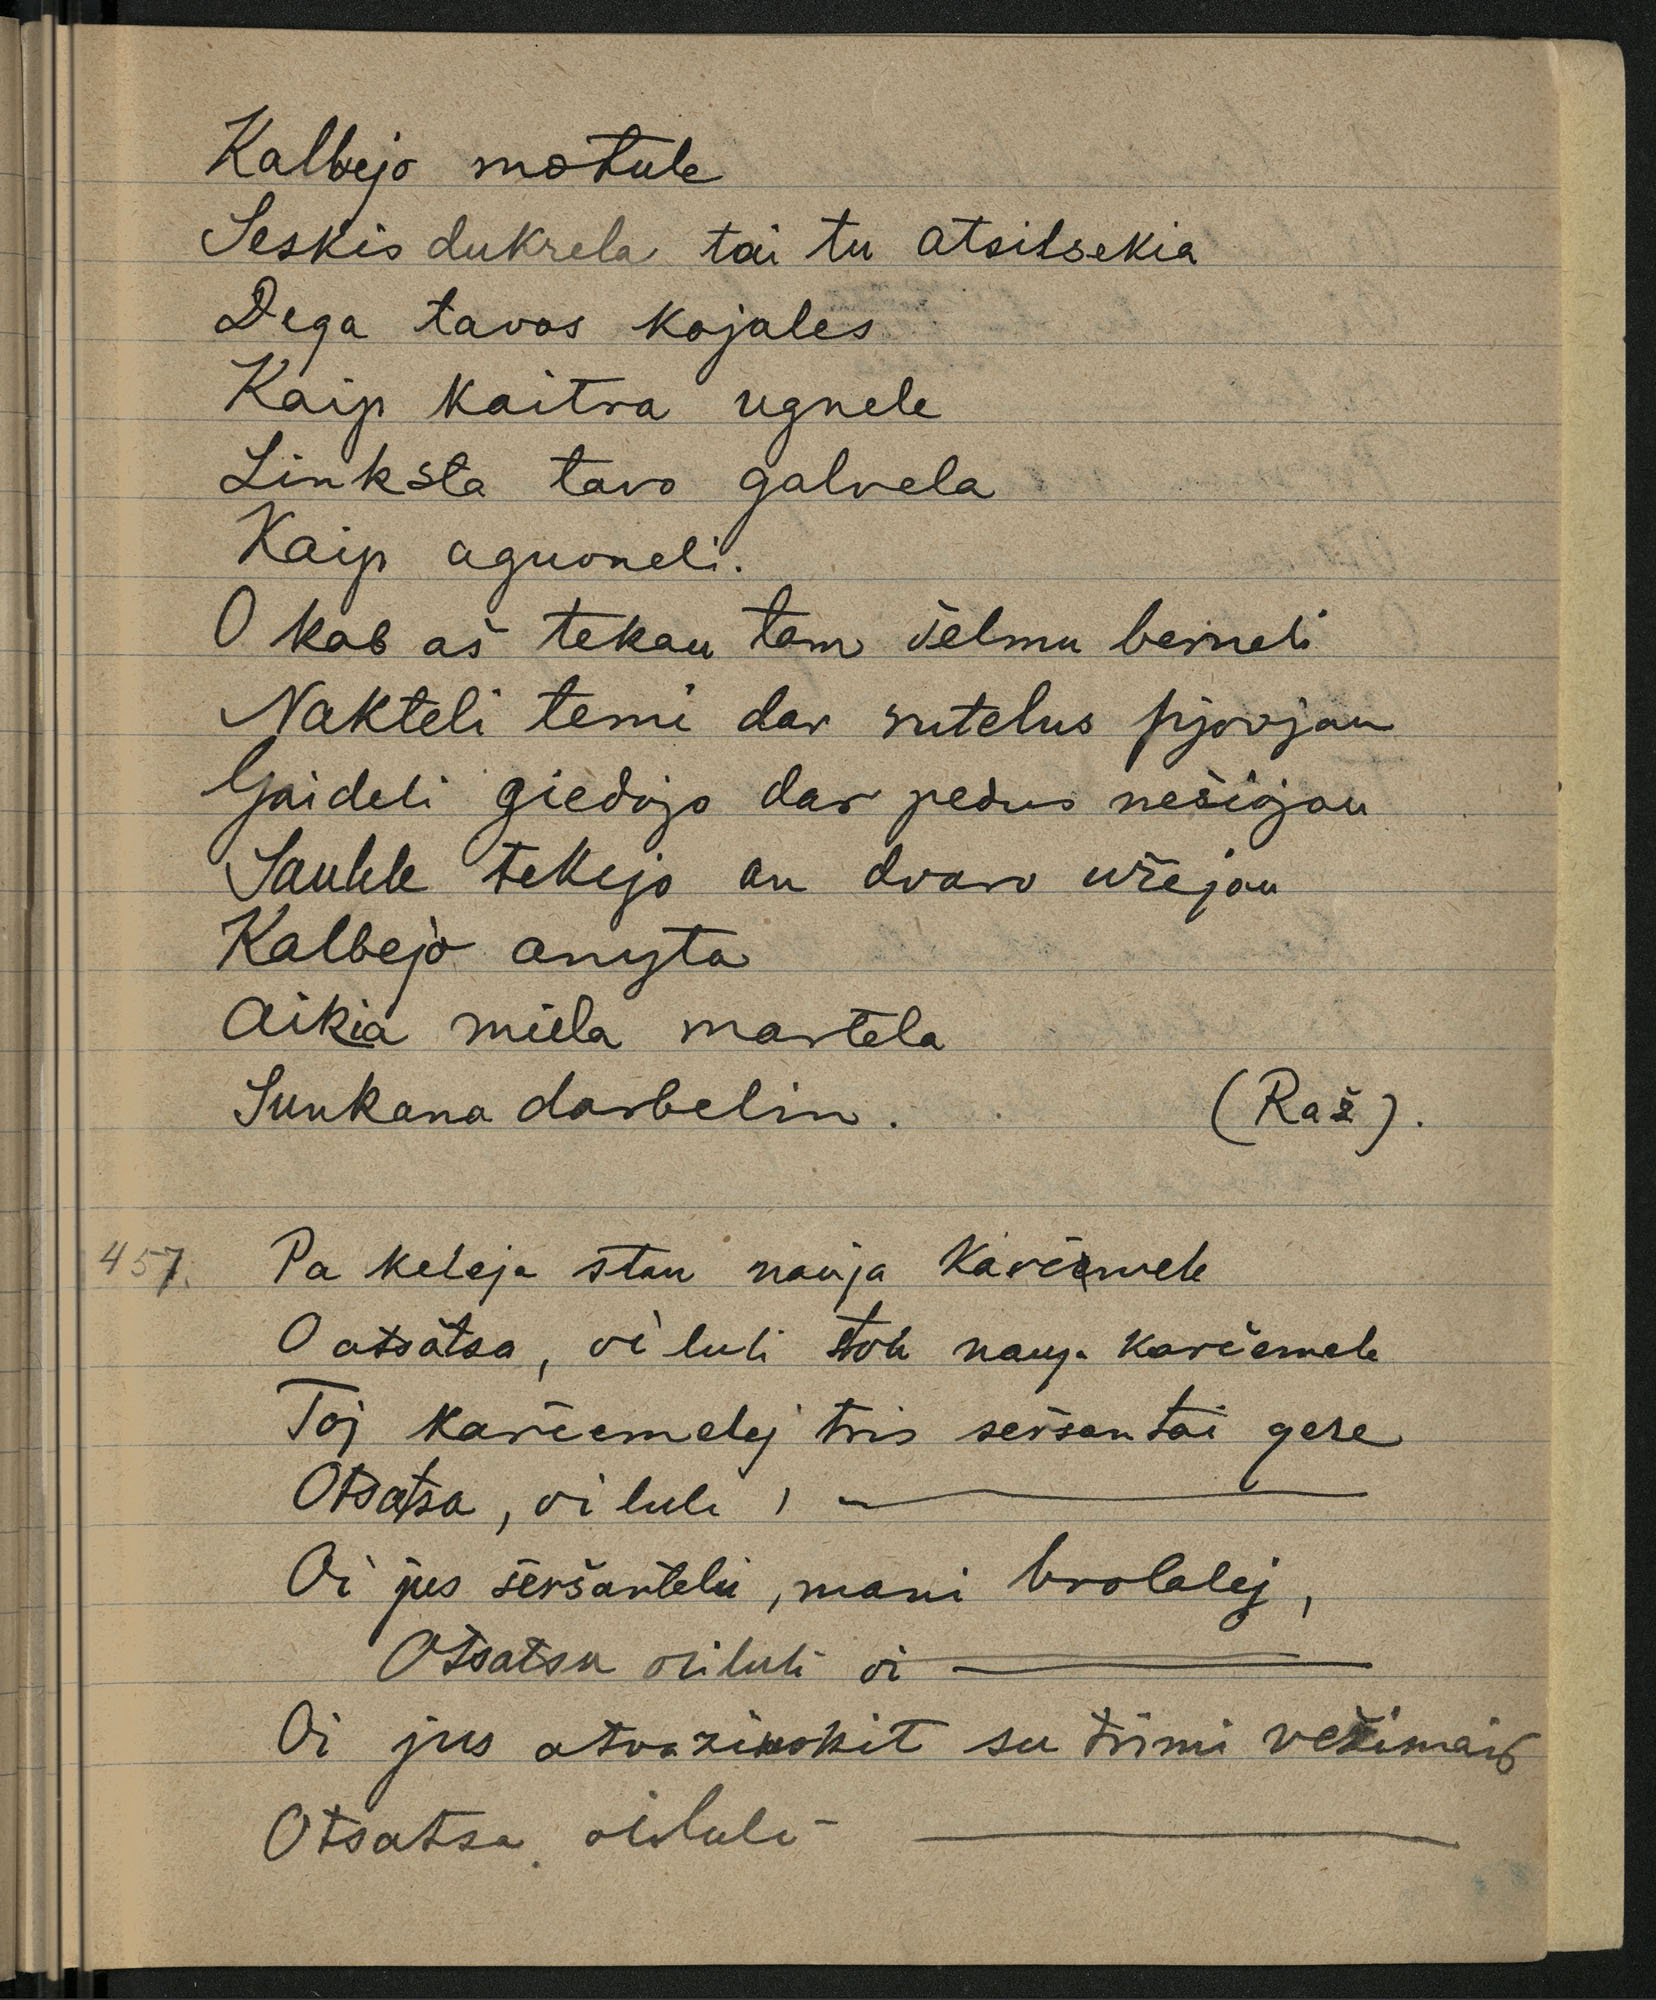 Kalbejo motule
Seskis dukrela tai tu atsilsekia
Dega tavos kojales
Kaip kaitra ugnele
Linksta tavo galvela
Kaip aguoneli.
O kab aš tekau tam šelmu berneli
Nakteli temi dar rutelus pjovjau
Gaideli giedojo dar pedus nešiojau
Saulele tekejo an dvaro užejau
Kalbejo anyta
Aikia miela martela
Sunkana darbelin. (Raž).
457. Pa keleja stau nauja karčemele
O atsatsa, oi luli stou nauja karčemele
Toj karčemelej tris seršantai gere
Otsatsa, oi luli, —
Oi jus šeršanteli, mani brolalej,
Otsatsa oi luli oi —
Oi jus atvaziuokit su trimi vežimais
Otsatsa oi luli —